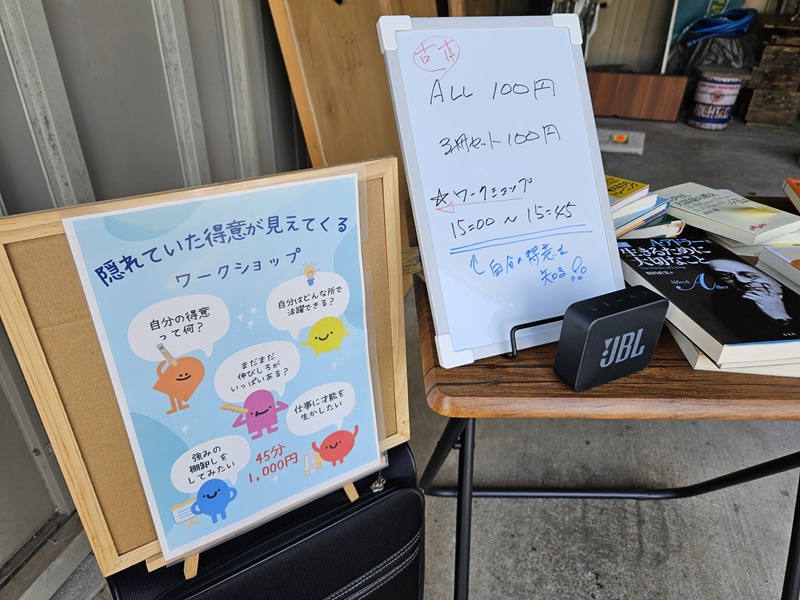 隠れていた得意が見えてくる
ワークショップ
自分の得意
って何？
自分はどんな所で
活躍できる？
まだまだ
伸びしろが
いっぱいある？
仕事に才能を
生かしたい
強みの
棚卸しを
してみたい
45分
1,000円
古本
ALL 100円
3冊セット 100円
☆ワークショップ
15:00 ~ 15:45
↑自分の得意を
知る
JBL
アドラー
生きるために
大切なこと
The Science of Living
Alfred
Adler